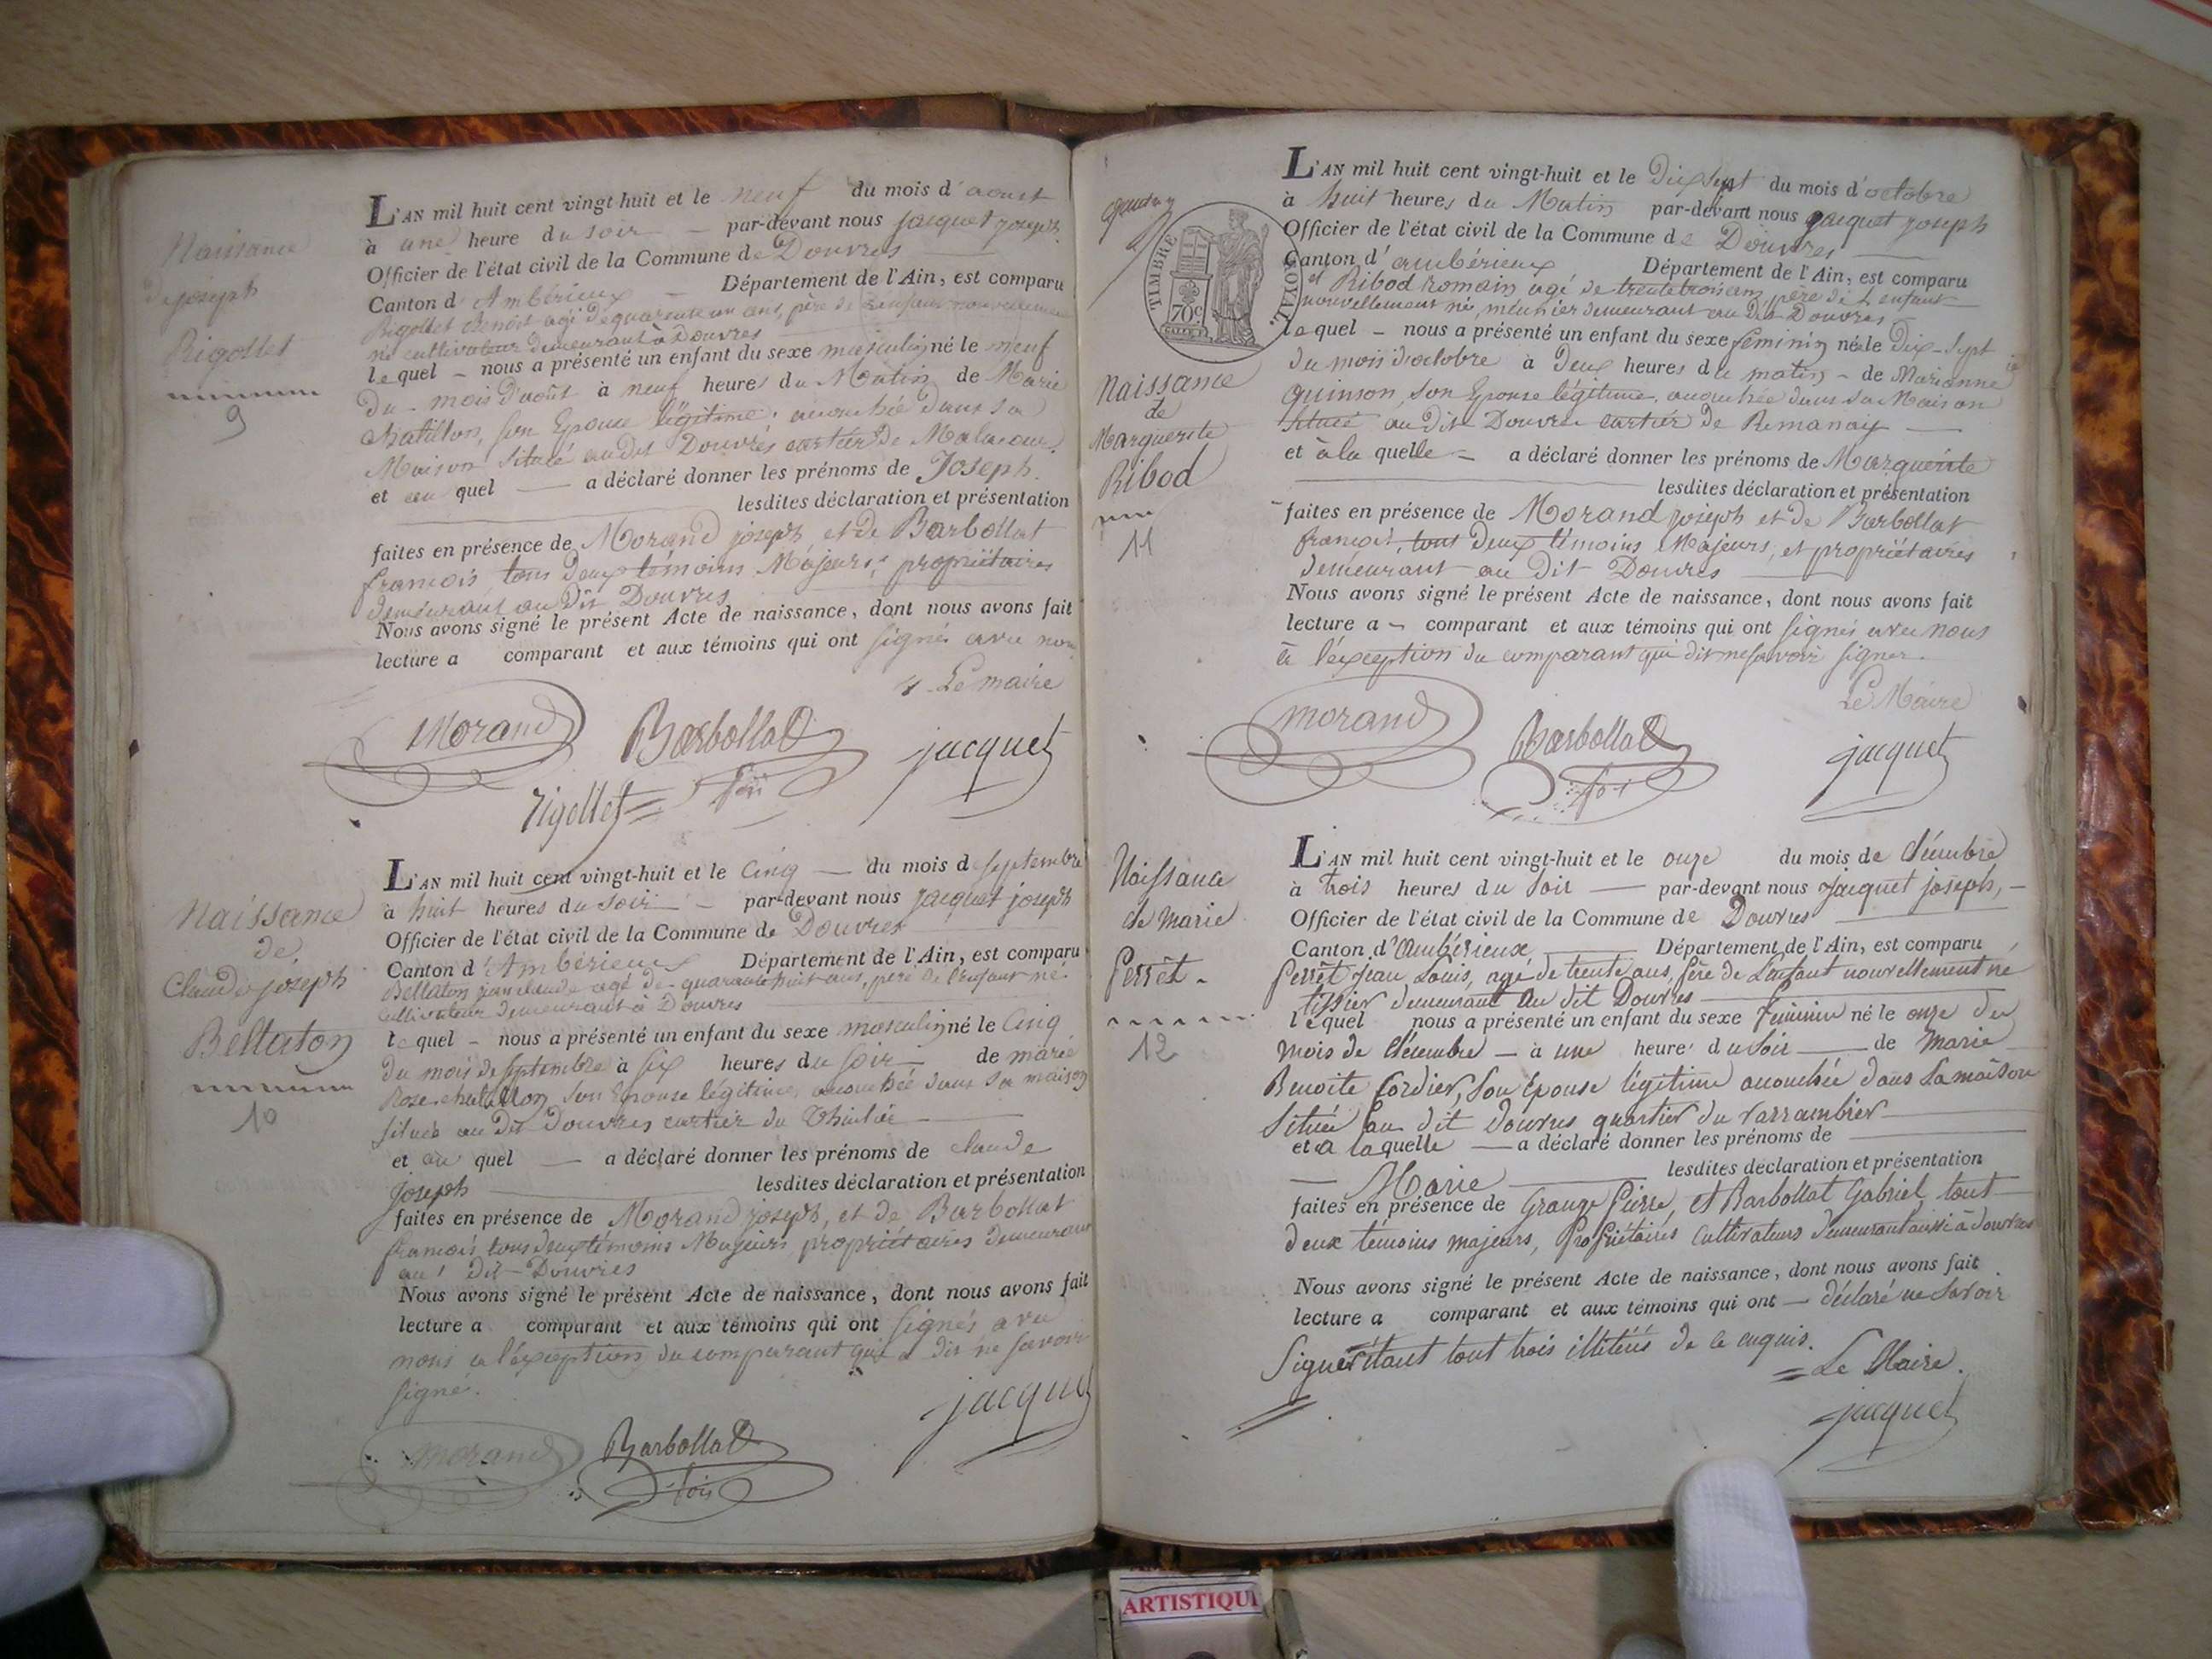 Naissance
de joseph
Rigollet
9
L'AN mil huit cent vingt-huit et le neuf du mois d'aoust
à une heure du soir — par-devant nous jacquet joseph
Officier de l'état civil de la Commune de Douvres
Canton d'Ambérieux — Département de l'Ain, est comparu
Rigollet Benoit agé de quarante un ans, père de l'enfant nouvellement
né cultivateur demeurant à Douvres
lequel – nous a présenté un enfant du sexe masculin né le neuf
du mois d'août à neuf heures du Matin de Marie
chatillon, son Epouse légitime, accouchée dans sa
Maison située au dit Douvres cartier de
et au quel — a déclaré donner les prénoms de Joseph.
lesdites déclaration et présentation
faites en présence de Morand joseph, et de Barbollat
francois tous deux témoins Majeurs, propriétaires
demeurant au dit Douvres
Nous avons signé le présent Acte de naissance, dont nous avons fait
lecture a comparant et aux témoins qui ont signés avec nous
Le maire
Morand Barbollat jacquet
rigollet
Naissance
de
Claude joseph
Bellaton
10
L'AN mil huit cent vingt-huit et le Cinq — du mois de septembre
à huit heures du soir — par-devant nous jacquet joseph
Officier de l'état civil de la Commune de Douvres
Canton d'Ambérieux Département de l'Ain, est comparu
Bellaton jean claude agé de quarante huit ans, père de l'enfant né
cultivateur demeurant à Douvres
lequel – nous a présenté un enfant du sexe masculin né le Cinq
du mois de septembre à six heures du soir — de marie
Rose chatillon son Epouse légitime, accouchée dans sa maison
située au dit Douvres cartier du
et au quel — a déclaré donner les prénoms de claude
Joseph lesdites déclaration et présentation
faites en présence de Morand joseph, et de Barbollat
francois tous deux témoins Majeurs, propriétaires demeurant
au dit Douvres
Nous avons signé le présent Acte de naissance, dont nous avons fait
lecture a comparant et aux témoins qui ont signés avec
nous à l'exception du comparant qui a dit ne savoir
signé.
jacquet
morand Barbollat
fois
TIMBRE ROYAL
70c
Naissance
de
Marguerite
Ribod
11
L'AN mil huit cent vingt-huit et le Dix sept du mois d'octobre
à huit heures du Matin par-devant nous jacquet joseph
Officier de l'état civil de la Commune de Douvres
Canton d'ambérieux Département de l'Ain, est comparu
Ribod romain agé de trente trois ans, père de l'enfant
nouvellement né, meunier demeurant au dit Douvres
lequel – nous a présenté un enfant du sexe féminin née le Dix-sept
du mois d'octobre à deux heures du matin – de Marianne
quinson, son Epouse légitime, accouchée dans sa Maison
située au dit Douvres cartier de
et à la quelle — a déclaré donner les prénoms de Marguerite
lesdites déclaration et présentation
faites en présence de Morand joseph et de Barbollat
francois, tous deux témoins Majeurs, et propriétaires
demeurant au dit Douvres
Nous avons signé le présent Acte de naissance, dont nous avons fait
lecture a – comparant et aux témoins qui ont signés avec nous
à l'exception du comparant qui dit ne savoir signer.
Le Maire
morand Barbollat jacquet
Naissance
de Marie
Perrêt
12
L'AN mil huit cent vingt-huit et le onze du mois de décembre
à trois heures du soir — par-devant nous jacquet joseph, –
Officier de l'état civil de la Commune de Douvres
Canton d'ambérieux Département de l'Ain, est comparu
Perrêt Jean Louis, agé de trente ans, père de L'enfant nouvellement né
tissier demeurant au dit Douvres
lequel nous a présenté un enfant du sexe féminin né le onze du
mois de décembre — à une heure du soir — de Marie
Benoite Cordier, son épouse légitime accouchée dans sa maison
située au dit Douvres quartier du
et a laquelle — a déclaré donner les prénoms de
Marie lesdites déclaration et présentation
faites en présence de Grange Pierre, et Barbollat Gabriel, tout
deux témoins majeurs, Propriétaires Cultivateurs demeurant aussi à Douvres
Nous avons signé le présent Acte de naissance, dont nous avons fait
lecture a comparant et aux témoins qui ont — déclaré ne savoir
Signer étant tout trois illitérés de ce enquis.
Le Maire.
jacquet
ARTISTIQU